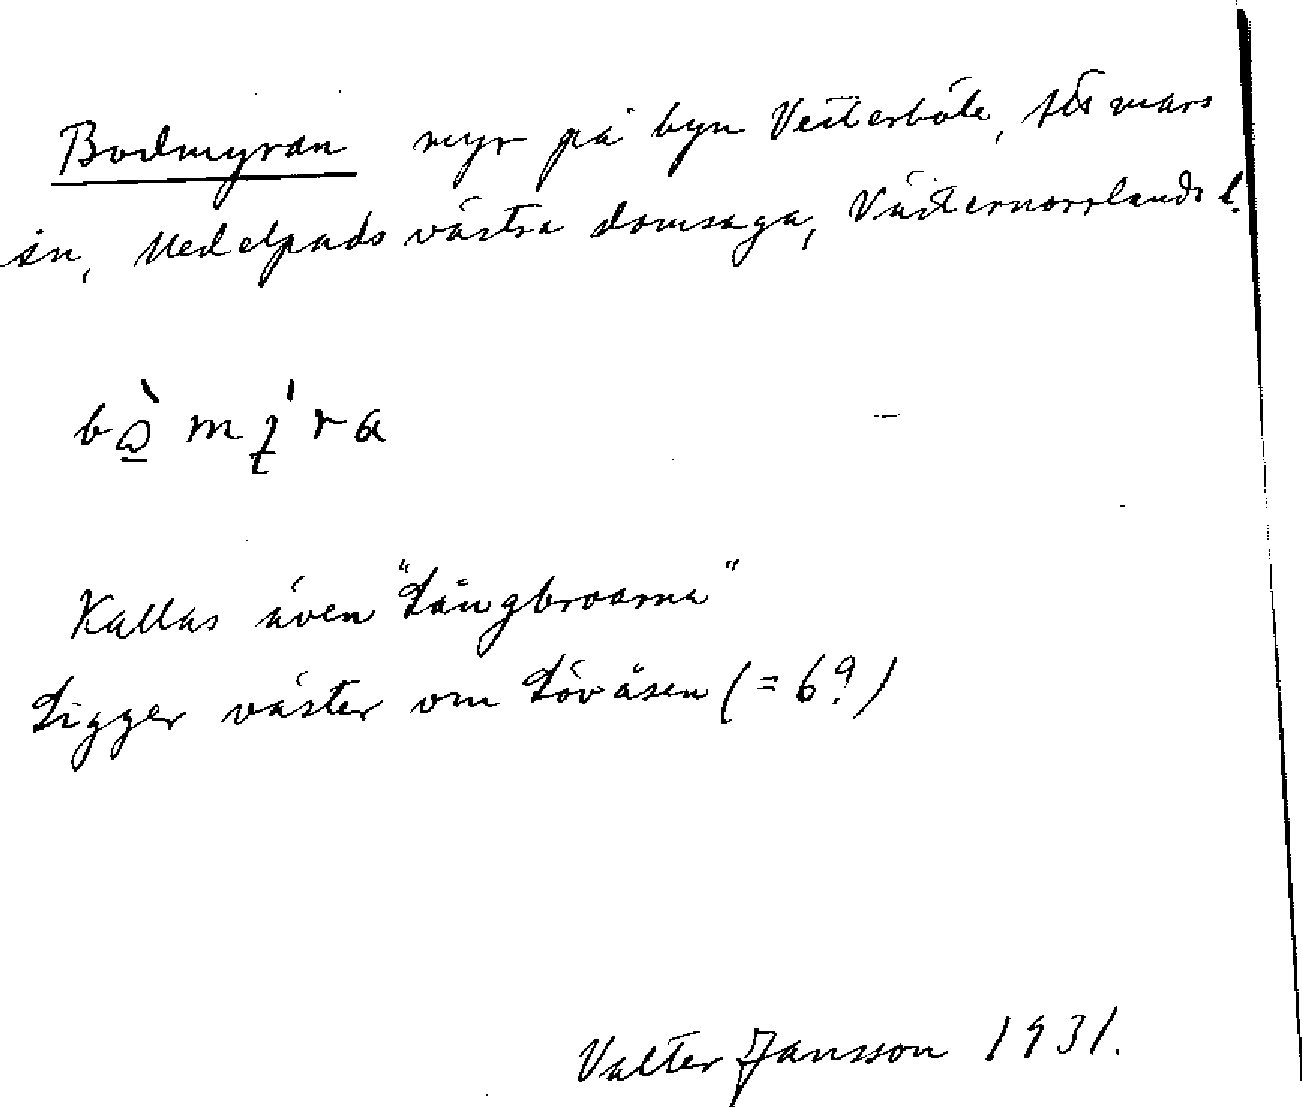 Bodmyran myr på byn Vesterböle, Attmars
sn, Medelpads västra domsaga, Västernorrlands l.
Kallas även "Långbroarna"
Ligger väster om Lövåsen (= 6?)
Valter Jansson 1931.